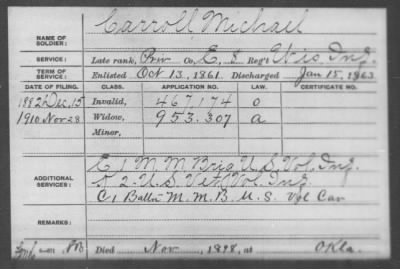 Carroll Michael
NAME OF SOLDIER:
SERVICE: Late rank, Priv Co. E. 8 Reg't Wis Inf.
TERM OF SERVICE: Enlisted Oct 13, 1861. Discharged Jan 15, 1863
DATE OF FILING. CLASS. APPLICATION NO. LAW. CERTIFICATE NO.
1882 Dec. 15 Invalid, 467.174 o
1910 Nov 28 Widow, 953.307 a
Minor,
ADDITIONAL SERVICES:
E 1 M. M. Brig U.S. Vol. Inf.
2. U.S. Vet. Vol. Inf.
C 1 Battn M. M. B. U.S. Vol Cav
REMARKS:
Died Nov, 1898, at Okla.